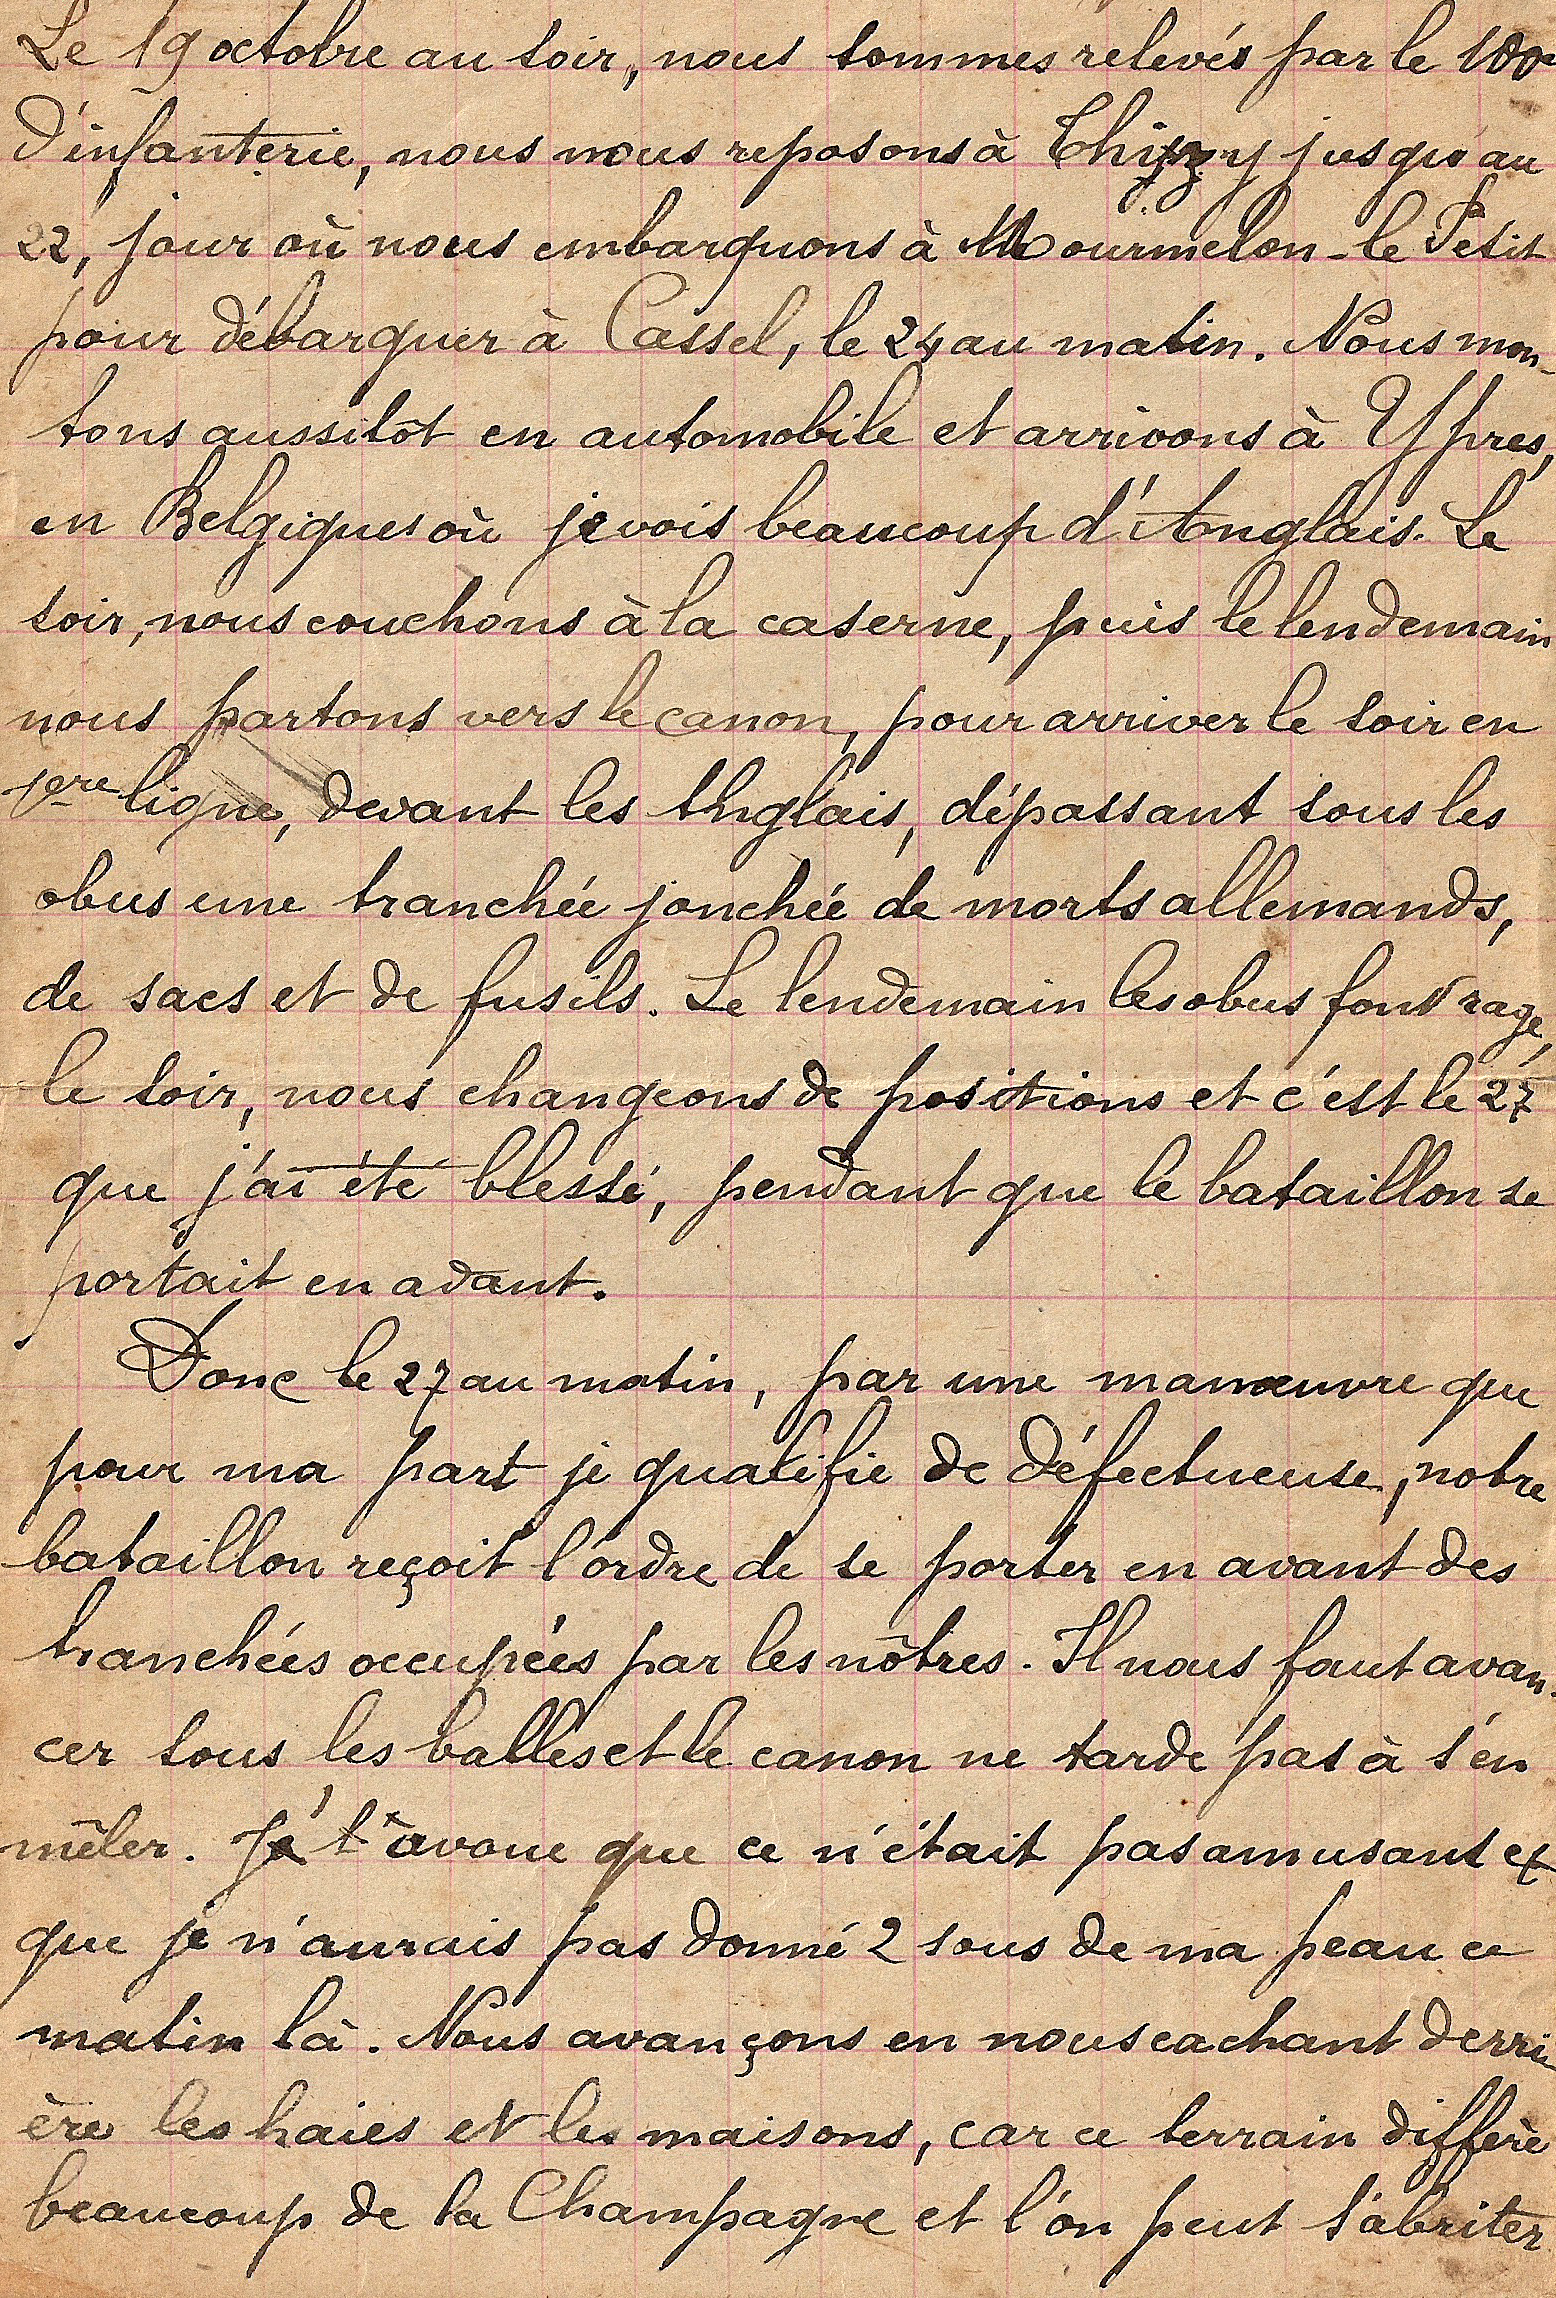 Le 19 octobre au soir, nous sommes relevés par le 100e
d'infanterie, nous nous reposons à Thizy jusqu'au
22, jour où nous embarquons à Mourmelon-le Petit
pour débarquer à Cassel, le 24 au matin. Nous mon-
tons aussitôt en automobile et arrivons à Ypres,
en Belgique où je vois beaucoup d'Anglais. Le
soir, nous couchons à la caserne, puis le lendemain
nous partons vers le canon, pour arriver le soir en
1ère ligne, devant les Anglais, dépassant sous les
obus une tranchée jonchée de morts allemands,
de sacs et de fusils. Le lendemain les obus font rage,
le soir, nous changeons de positions et c'est le 27
que j'ai été blessé, pendant que le bataillon se
portait en avant.
Donc le 27 au matin, par une manœuvre que
pour ma part je qualifie de défectueuse, notre
bataillon reçoit l'ordre de se porter en avant des
tranchées occupées par les nôtres. Il nous faut avan-
cer sous les balles et le canon ne tarde pas à s'en
mêler. Je t'avoue que ce n'était pas amusant et
que je n'aurais pas donné 2 sous de ma peau ce
matin là. Nous avançons en nous cachant derri-
ère les haies et les maisons, car ce terrain diffère
beaucoup de la Champagne et l'on peut s'abriter